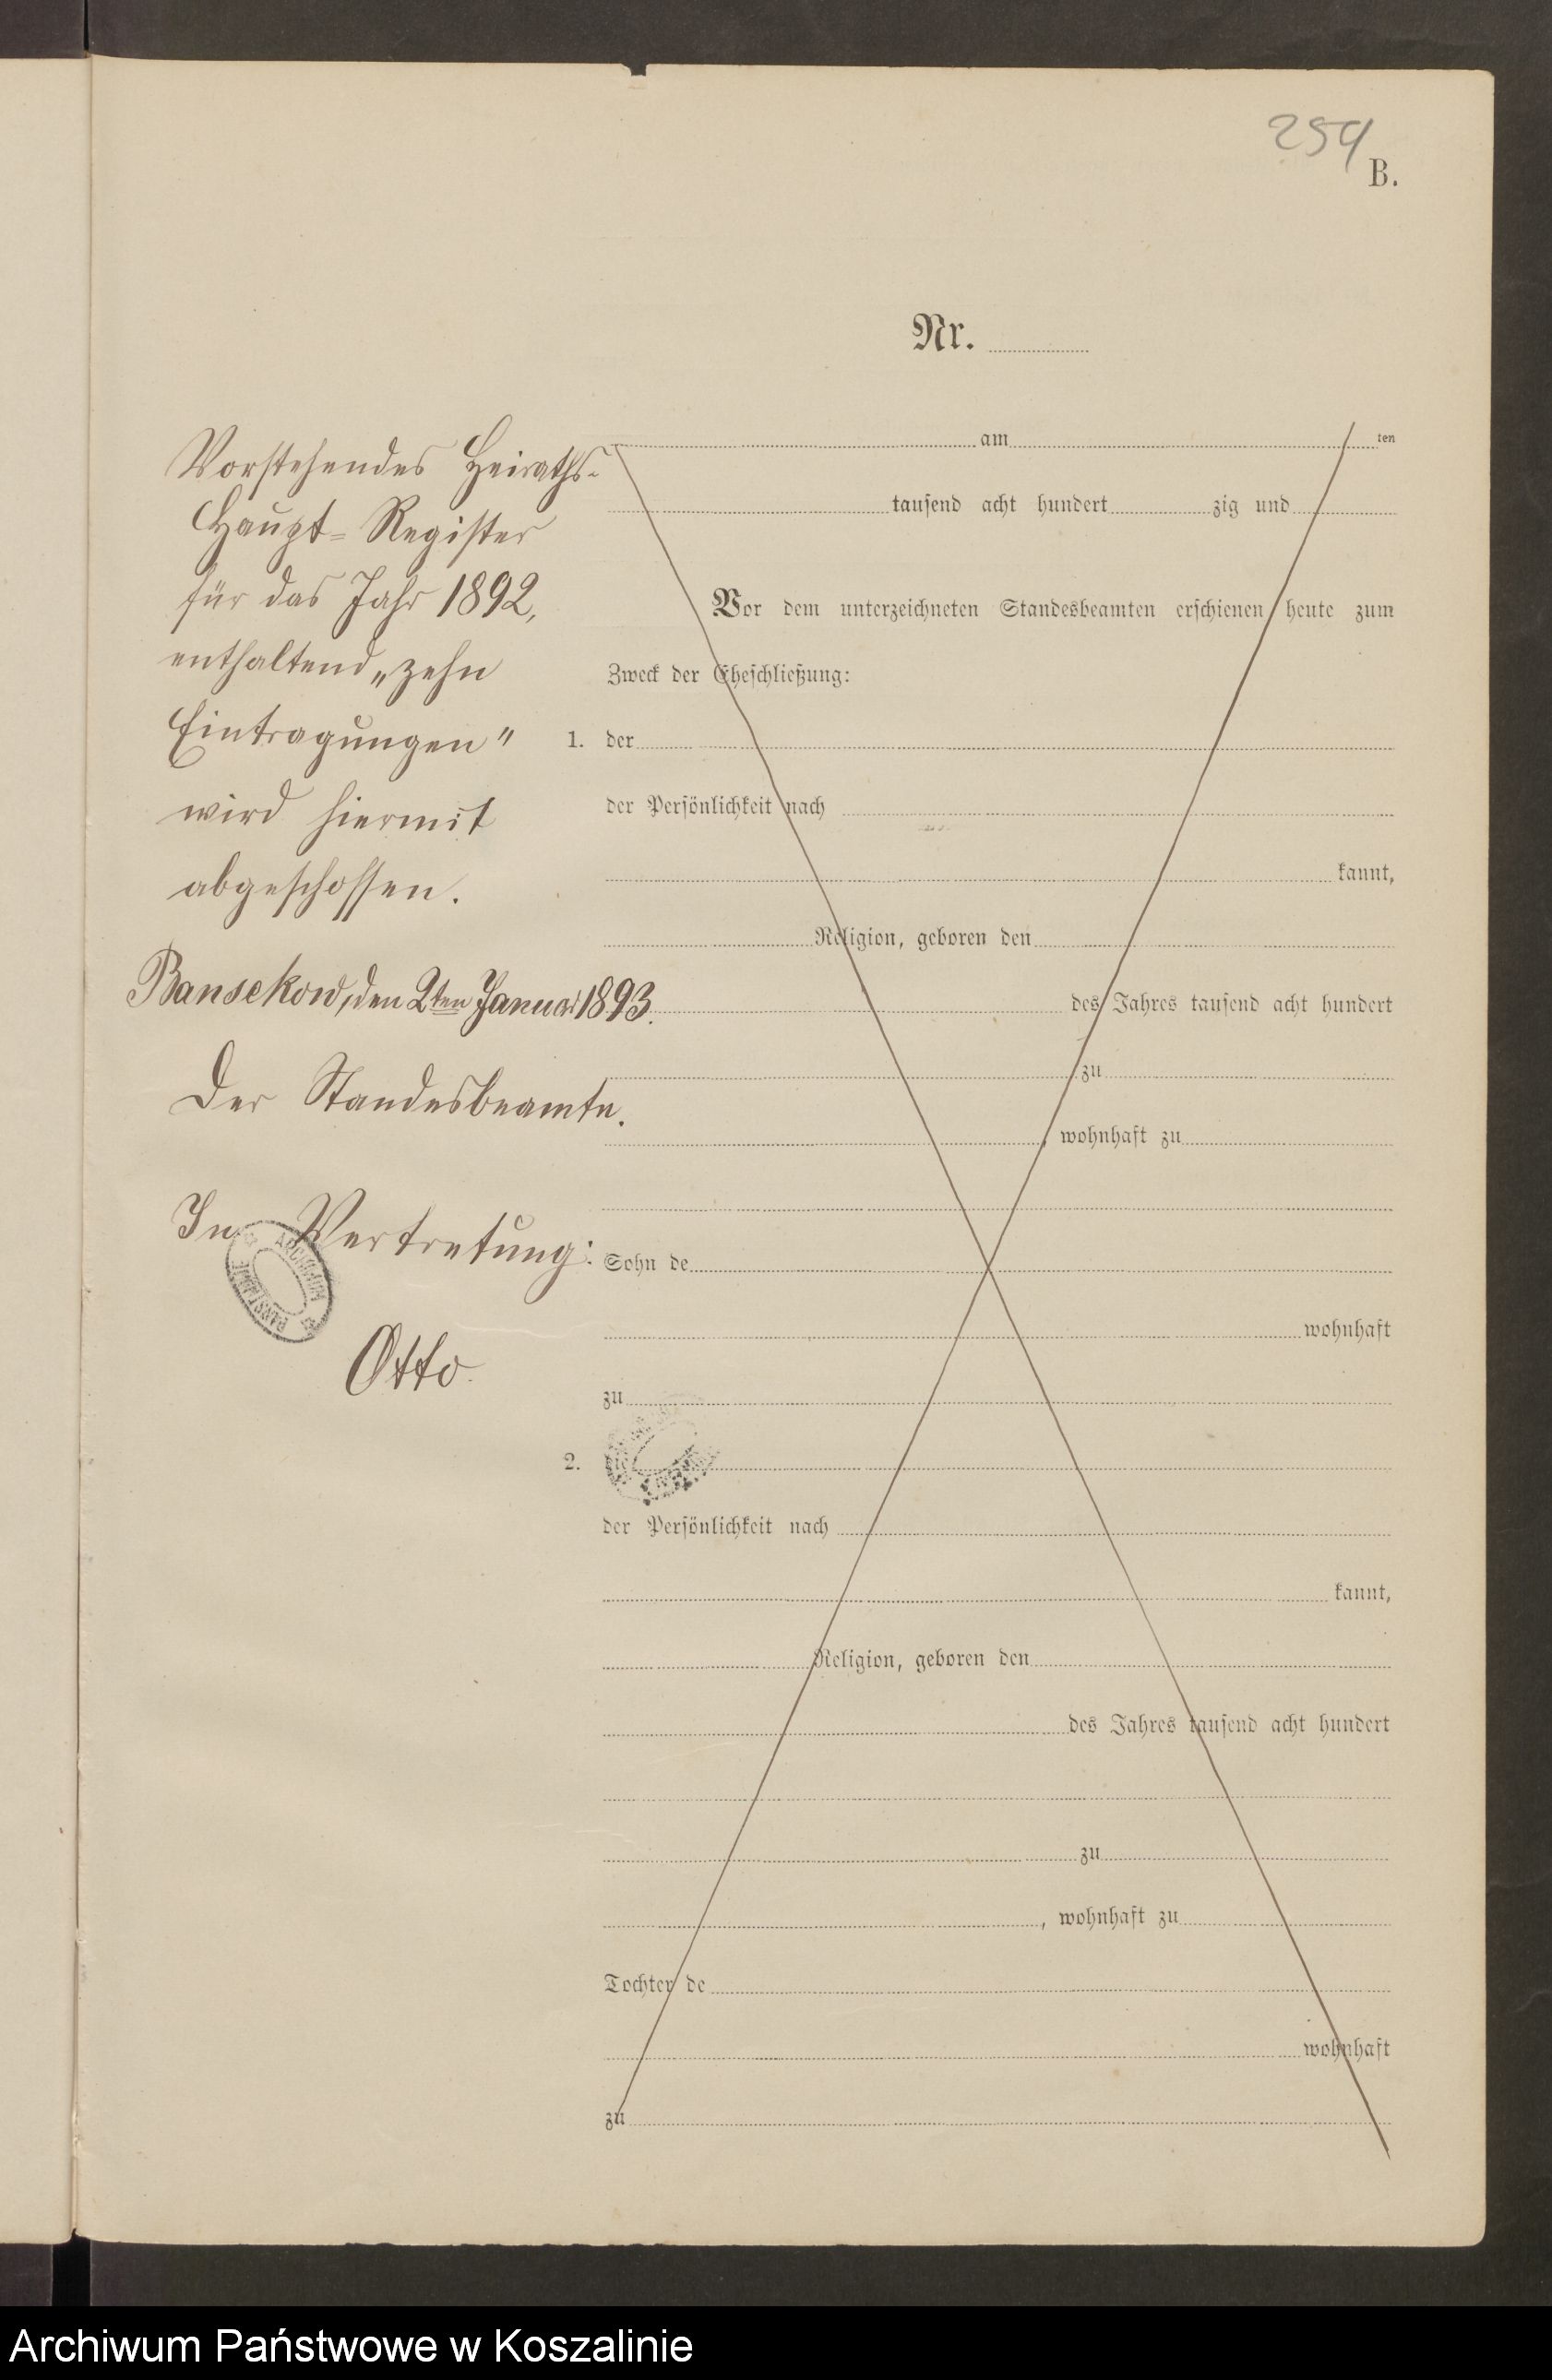 254
B.
Nr.
Vorstehendes Heiraths-
Haupt-Register
für das Jahr 1892,
enthaltend „zehn
Eintragungen“
wird hiermit
abgeschossen.
Bansekow, den 2ten Januar 1893.
Der Standesbeamte.
In Vertretung:
Otto.
am ten
tausend acht hundert zig und
Vor dem unterzeichneten Standesbeamten erschienen heute zum
Zweck der Eheschließung:
1. der
der Persönlichkeit nach
kannt,
Religion, geboren den
des Jahres tausend acht hundert
zu
, wohnhaft zu
Sohn de
wohnhaft
zu
2. die
der Persönlichkeit nach
kannt,
Religion, geboren den
des Jahres tausend acht hundert
zu
, wohnhaft zu
Tochter de
wohnhaft
zu
ARCHIWUM PAŃSTWOWE
Archiwum Państwowe w Koszalinie